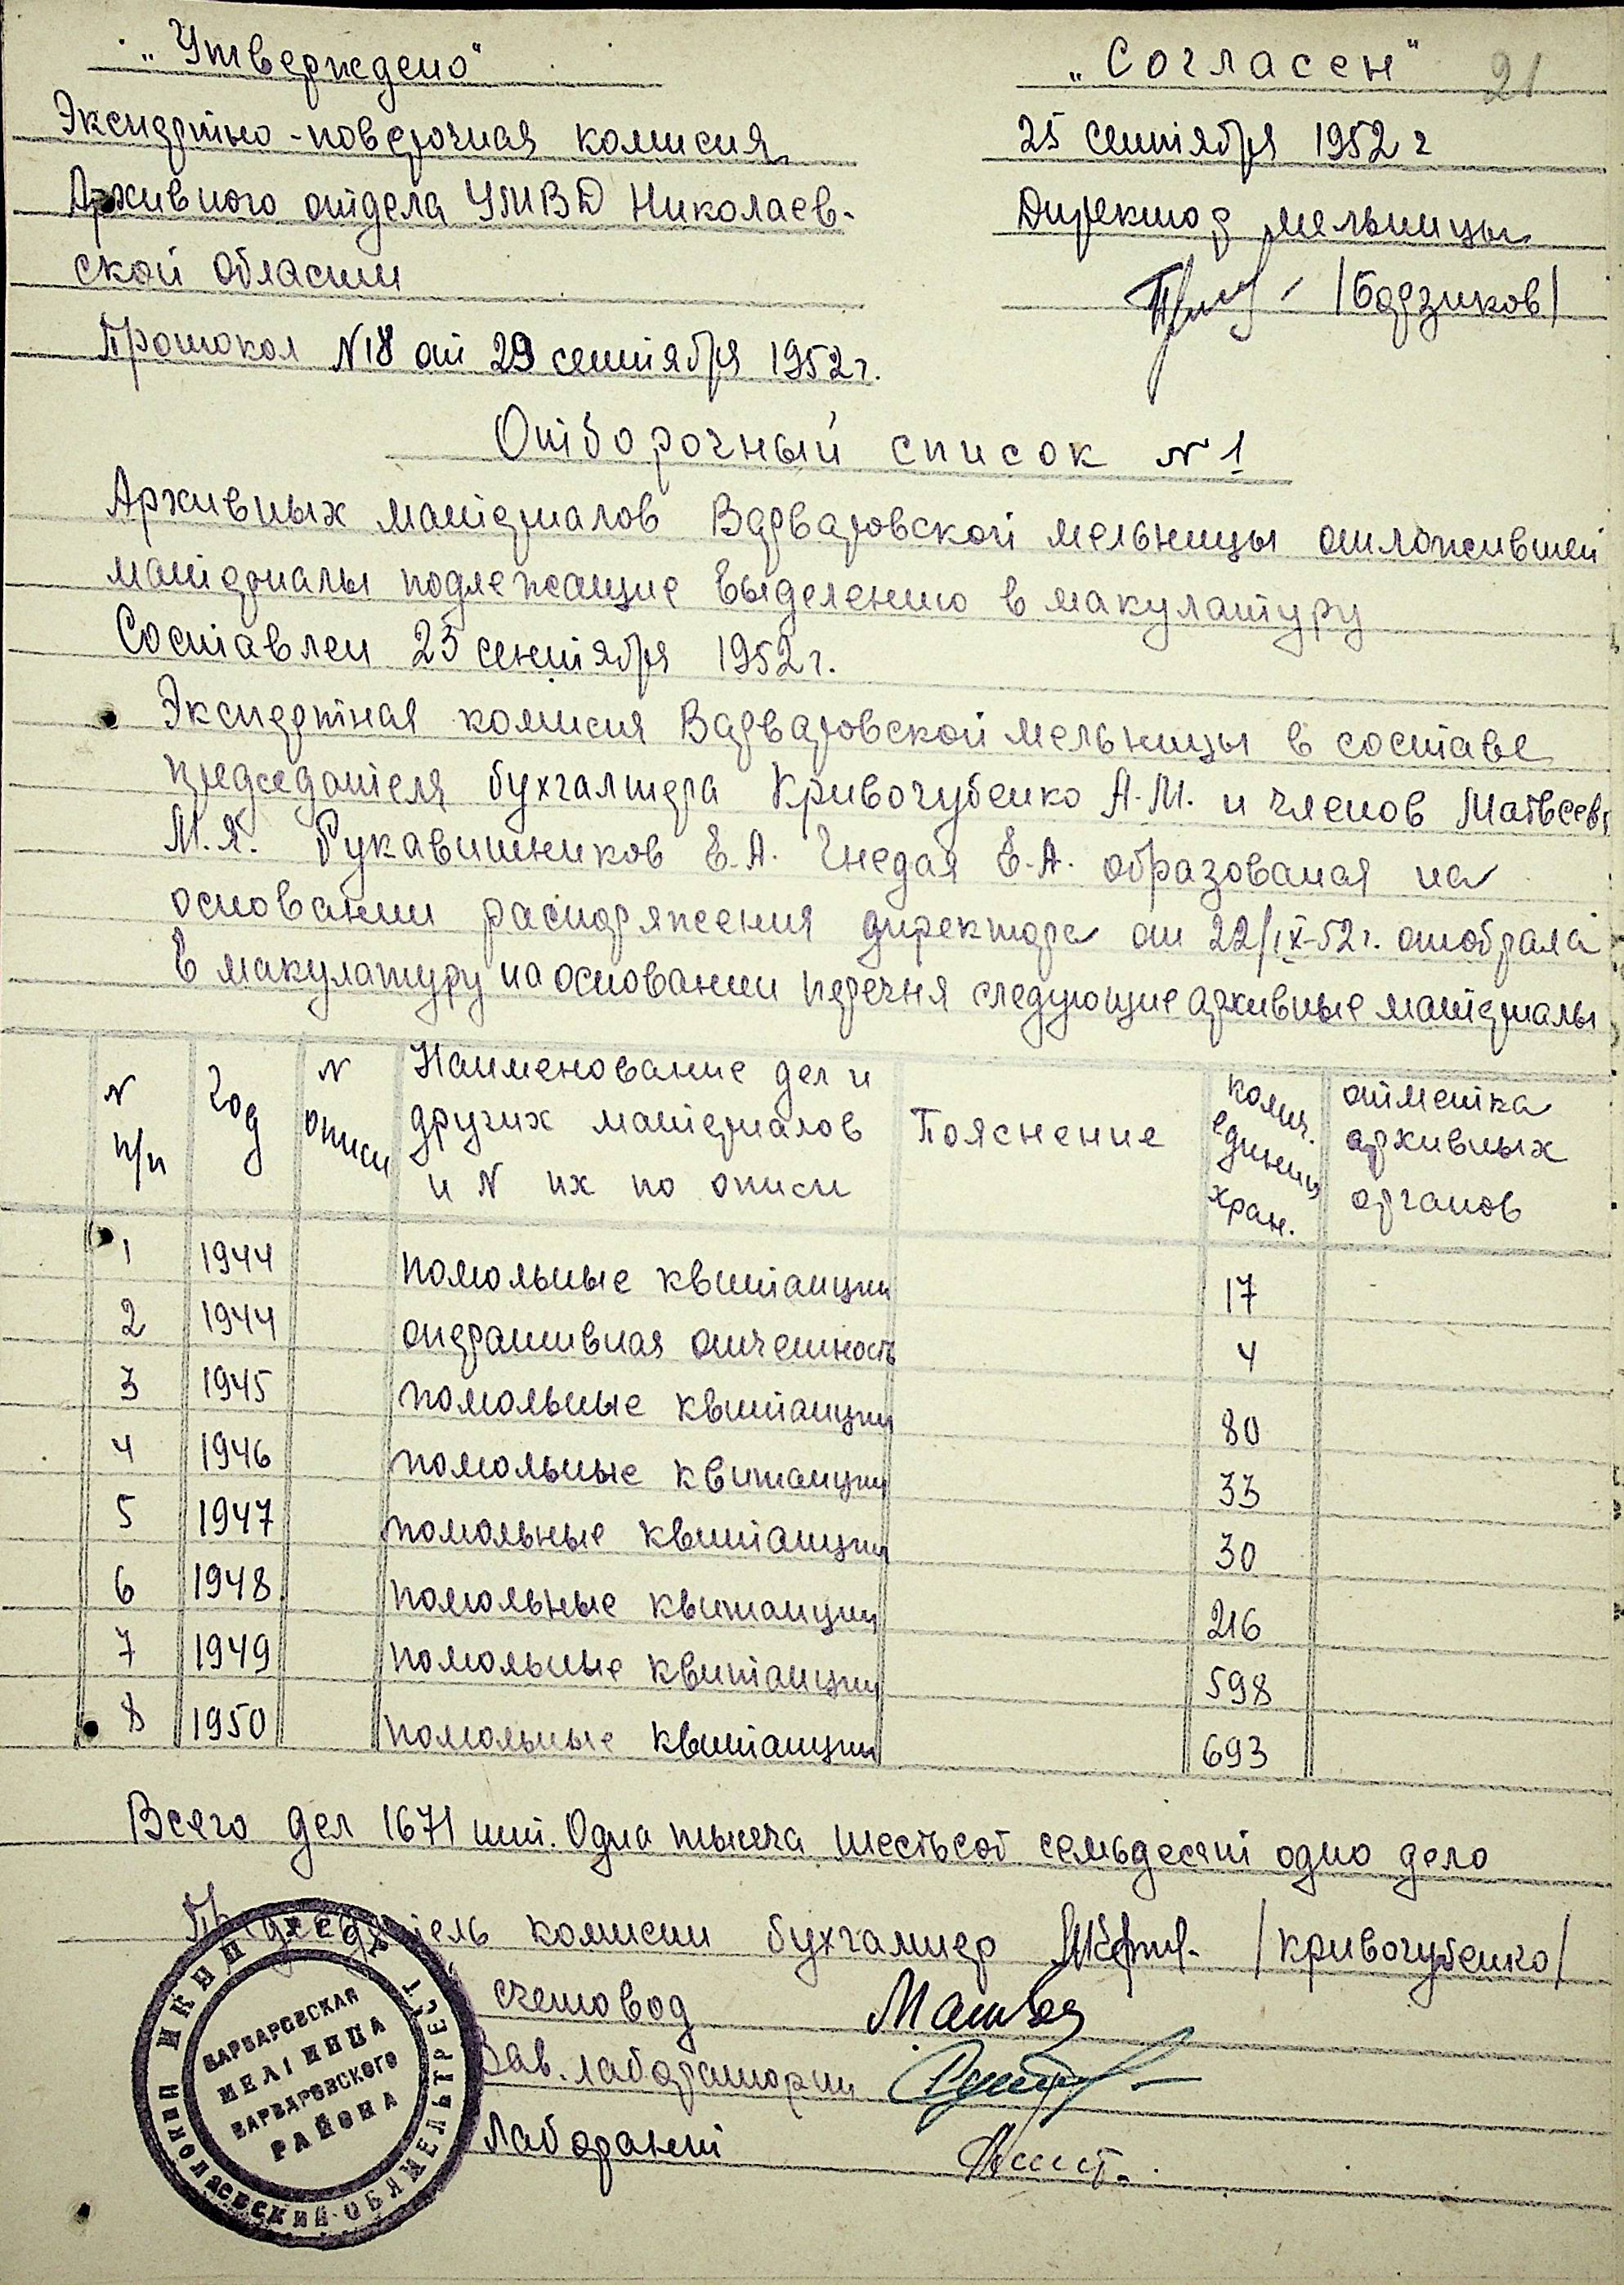 „Утверждено"
Экспертно-поверочная комисия
Архивного отдела УМВД Николаев-
ской области
Протокол №18 от 29 сентября 1952г.
„Согласен"
21
25 сентября 1952 г
Директор мельницы
/Бэрзиков/
Отборочный список №1
Архивных материалов Варваровской мельницы отложившей
материалы подлежащие выделению в макулатуру
Составлен 25 сентября 1952г.
Экспертная комисия Варваровской мельницы в составе
председателя бухгалтера Кривогубенко А.М. и членов Матвеев
М.Я. Рукавишников Е.А. Гнедая Е.А. образованая на
основании распоряжения директора от 22/IX-52г. отобрала
в макулатуру на основании перечня следующие архивные материалы
№ п/п Год № описи Наименование дел и других материалов и № их по описи Пояснение колич. единиц хран. отметка архивных органов
1 1944 помольные квитанции 17
2 1944 оперативная отчетность 4
3 1945 помольные квитанции 80
4 1946 помольные квитанции 33
5 1947 помольные квитанции 30
6 1948 помольные квитанции 216
7 1949 помольные квитанции 598
8 1950 помольные квитанции 693
Всего дел 1671 шт. Одна тысяча шестьсот семьдесят одно дело
Председатель комисии бухгалтер /Кривогубенко/
счетовод Матвеев
Зав. лаборатории
Лаборант
ВАРВАРОВСКАЯ
МЕЛІНИЦА
ВАРВАРОВСКОГО
РАЙОНА
НИКОЛАЕВСКИЙ ОБЛМЕЛЬТРЕСТ